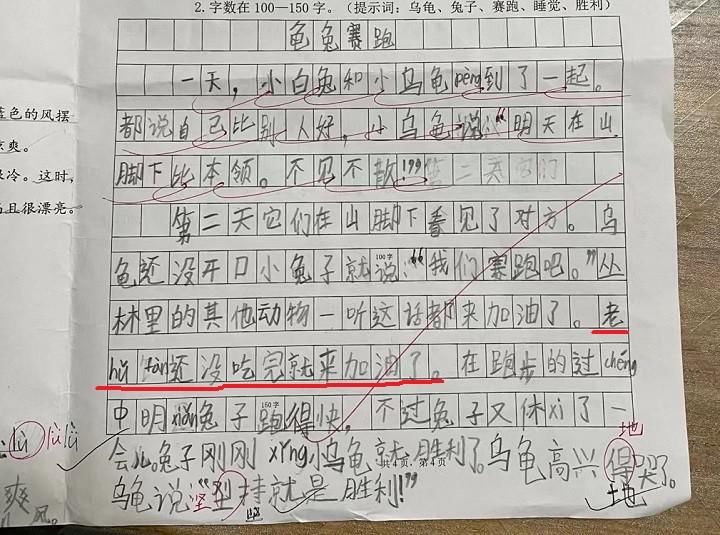 2.字数在100—150字。（提示词：乌龟、兔子、赛跑、睡觉、胜利）
龟兔赛跑
一天，小白兔和小乌龟pèng到了一起。
都说自己比别人好，小乌龟说：“明天在山
脚下比本领。不见不散!”第二天它们
第二天它们在山脚下看见了对方。乌
龟还没开口小兔子就说：“我们赛跑吧。”丛
100字
林里的其他动物一听这话都来加油了。老
hǔ fàn还没吃完就来加油了。在跑步的过chéng
中明xiǎn兔子跑得快，不过兔子又休xi了一
150字
地
会儿。兔子刚刚xǐng，小乌龟就胜利了。乌龟高兴得哭了。
共4页，第4页
地
乌龟说“坚持就是胜利!”
坚
蓝色的风摆
凉爽。
寒冷。这时，
而且很漂亮。
lù lǜ lǜ
爽
风。